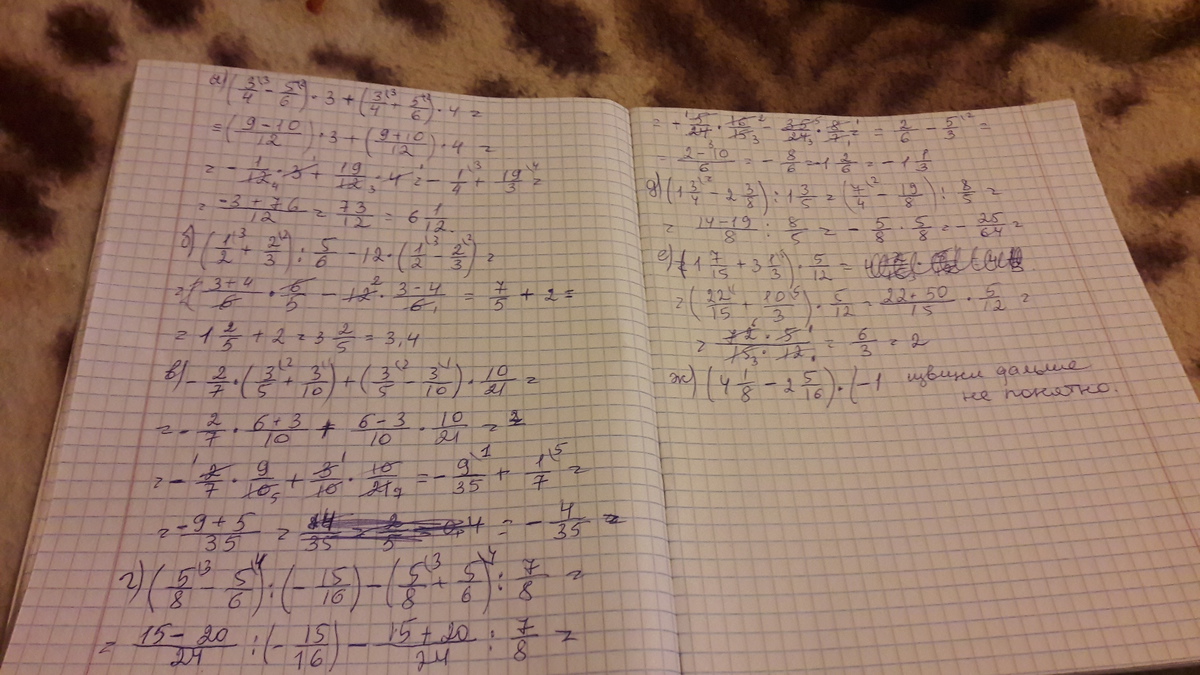 а) (3/4\3 - 5/6\2) · 3 + (3/4\3 + 5/6\2) · 4 =
= (9-10/12) · 3 + (9+10/12) · 4 =
= - 1/12₄ · 3\1 + 19/12₃ · 4\1 = - 1/4\3 + 19/3\4 =
= -3+76/12 = 73/12 = 6 1/12.
б) (1/2\3 + 2/3\2) : 5/6 - 12 · (1/2\3 - 2/3\2) =
= 3+4/6 · 6/5 - 12\2 · 3-4/6₁ = 7/5 + 2 =
= 1 2/5 + 2 = 3 2/5 = 3,4
в) - 2/7 · (3/5\2 + 3/10\1) + (3/5\2 - 3/10\1) · 10/21 =
= - 2/7 · 6+3/10 + 6-3/10 · 10/21 =
= - 2\1/7 · 9/10₅ + 3\1/10 · 10/21₇ = - 9/35\1 + 1/7\5 =
= -9+5/35 = = - 4/35
г) (5/8\3 - 5/6\4) : (- 15/16) - (5/8\3 + 5/6\4) : 7/8 =
= 15-20/24 : (- 15/16) - 15+20/24 : 7/8 =
= + 5\1/24 · 16/15₃ - 35\5/24₃ · 8\1/7₁ = = 2/6 - 5/3\2 =
= 2-10/6 = - 8/6 = -1 2/6 = -1 1/3
д) (1 3/4\2 - 2 3/8) : 1 3/5 = (7/4\2 - 19/8) : 8/5 =
= 14-19/8 : 8/5 = - 5/8 · 5/8 = - 25/64 =
е) (1 7/15 + 3 1/3) · 5/12 =
= (22/15 + 10/3\5) · 5/12 = 22+50/15 · 5/12 =
= 72\6 · 5\1/15₃ · 12₁ = 6/3 = 2
ж) (4 1/8 - 2 5/16) · (-1 щвини дальше
не понятно.